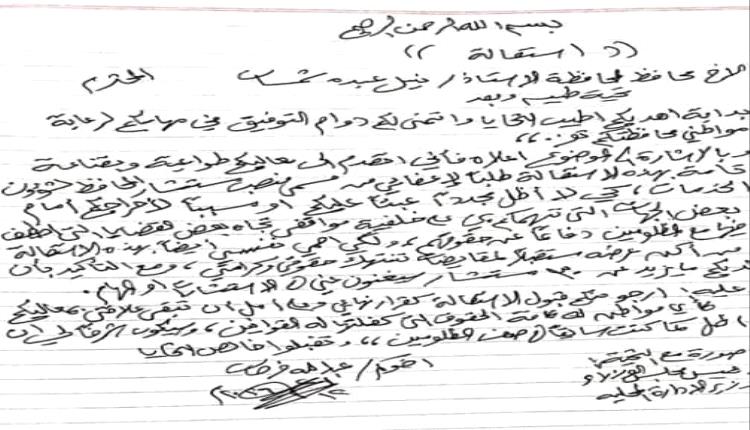 بسم الله الرحمن الرحيم
(( استقالة ))
الاخ محافظ محافظة الاستاذ / نبيل عبده شمسان المحترم
تحية طيبة وبعد
بداية اهديكم اطيب التحايا واتمنى لكم دوام التوفيق في مهامكم لرعاية
مواطني محافظتكم تعز..،،
وبالاشارة للموضوع اعلاه فأني اتقدم الى معاليكم طواعية وبقناعة
تامة بهذه الاستقالة طلباً لإعفائي من مسمى منصب مستشار المحافظ لشؤون
الخدمات، كي لا أظل مجدداً عبئاً عليكم او مسبباً لإحراجكم أمام
بعض الجهات التي تتهمكم بي على خلفية مواقفي تجاه بعض القضايا التي اقف
فيها مع المظلومين دفاعاً عن حقوقهم، ولكي احمي نفسي أيضاً بهذه الاستقالة
من أكون عرضه مستقبلاً لمقايضة تنتهك حقوقي وكرامتي، ومع التأكيد بأن
لديكم ما يزيد عن مستشار سيغنون عني في الاستشارة او المهام.
عليه ارجو منكم قبول الاستقالة كقرار نهائي ومع أمل ان تبقى علاقتي بمعاليكم
كأي مواطن له كافة الحقوق التي كفلتها له القوانين، وسيكون شرفاً لي ان
اظل كما كنت سابقاً في صف المظلومين،، وتقبلوا خالص التحايا
اخوكم / عبدالله فرحان
صورة مع التحية
رئيس مجلس الوزراء
وزير الادارة المحلية